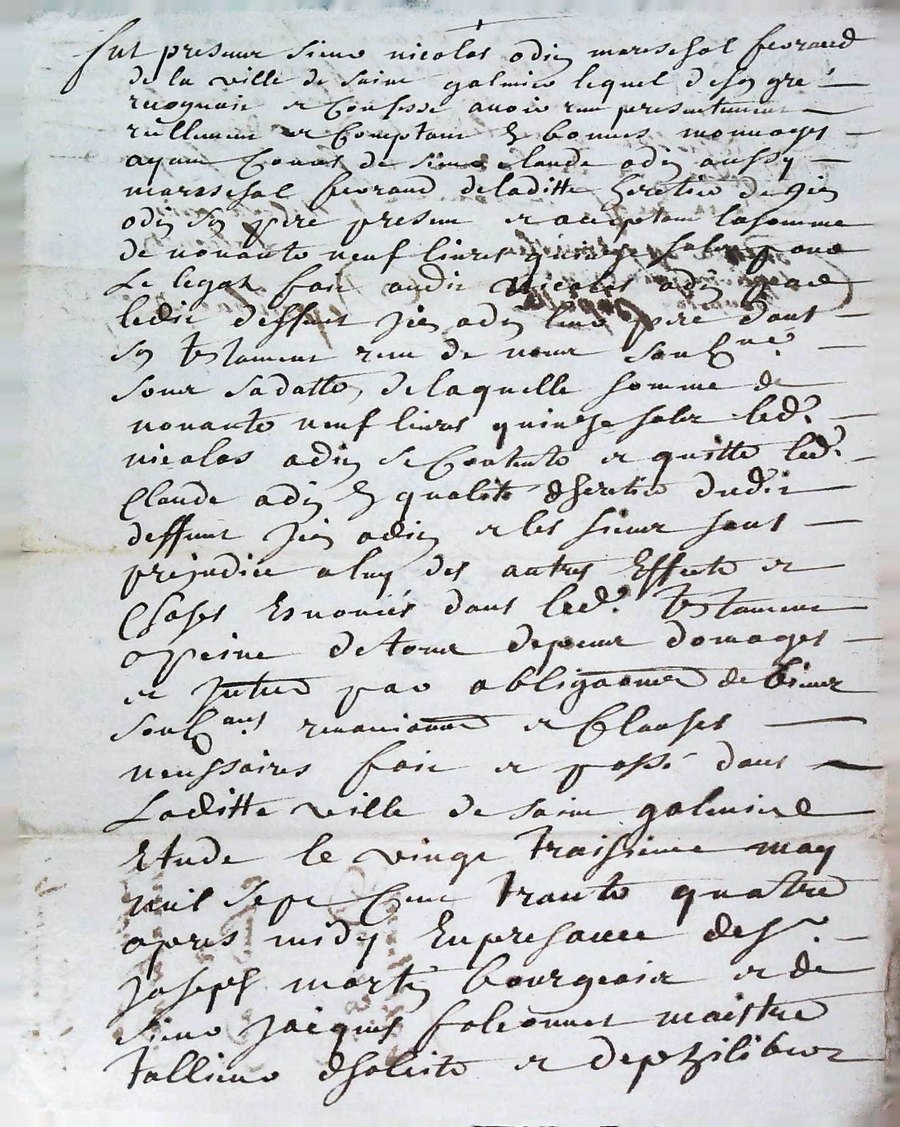 fut present sieur nicolas odin mareschal ferrand
de la ville de saint galmier lequel de son gré
recognait et Confesse avoir reçu presentement
reellement et Comptant En bonnes monnoyes
ayant Cours de sieur claude odin aussy
mareschal ferrand de laditte heretier de
odin son pere present et acceptant la somme
de nonante neuf livres quinze sols pour
Le legat fait audit Nicolas odin par
ledit deffunt odin leur pere dans
son testament reçu de nous Soubsné
Sous sa datte, de laquelle somme de
nonante neuf livres quinze sols led.
nicolas odin se Contente et quitte led.
Claude odin En qualité dheretier dudit
deffunt odin et les siens sans
prejudice a luy des autres Effects et
Choses Enoncés dans led. testament
a peine de tous depens domages
et interest par obligaons de biens
soub.ons renonciaons et Clauses
necessaires fait et passé dans
Laditte ville de saint galmier
Etude le vingt troissieme may
mil sept Cent trante quatre
apres midy En presance de sr
Joseph martin bourgeois et de
sieur Jacques falconnet maistre
tallieur et